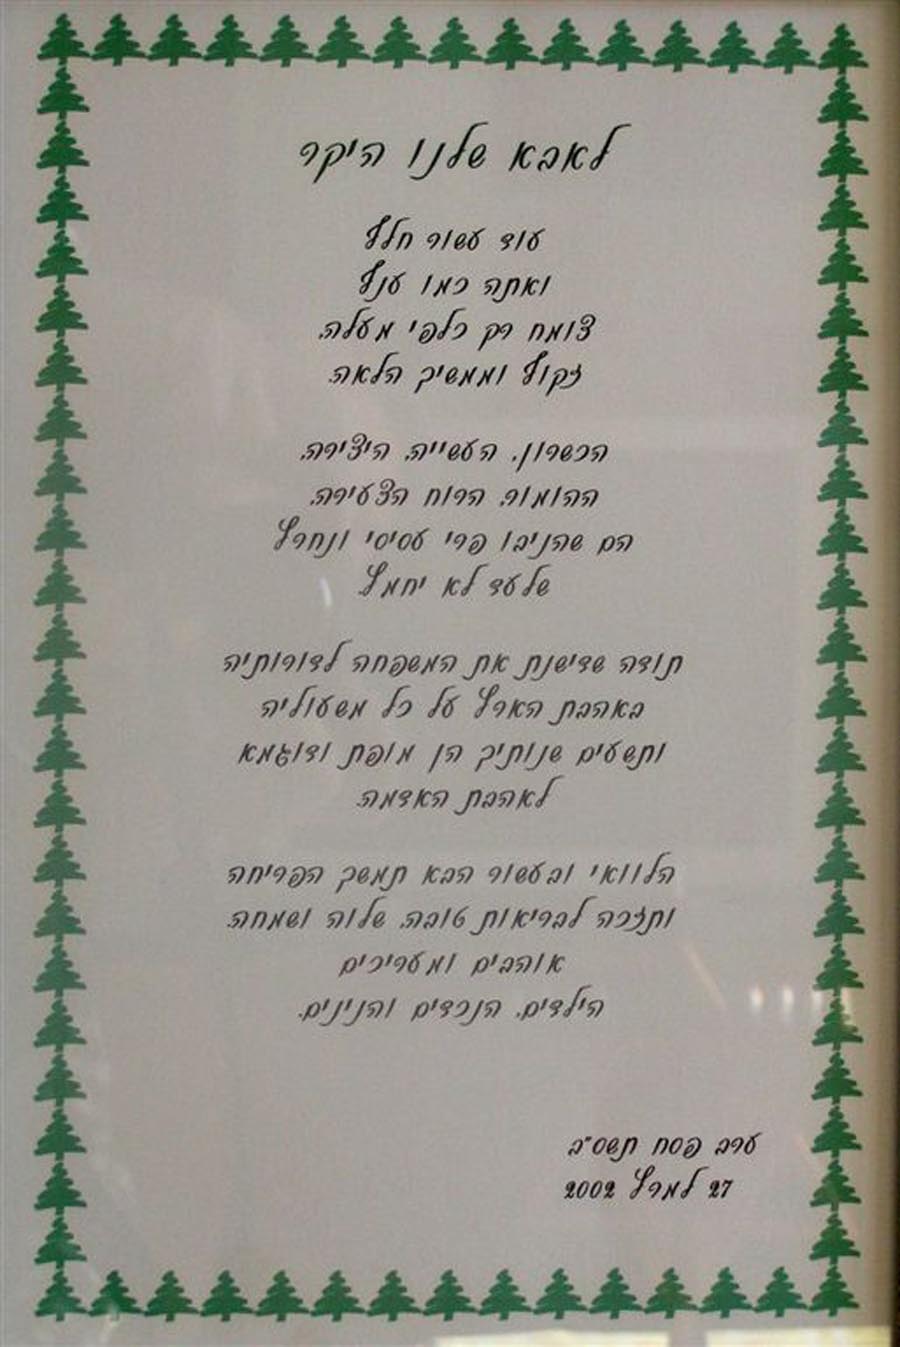 לאבא שלנו היקר
עוד עשור חלף
ואתה כמו ענף
צומח רק כלפי מעלה,
זקוף וממשיך הלאה.
הכשרון, העשייה, היצירה,
ההומור, הרוח הצעירה,
הם שהניבו פרי עסיסי ונחרץ
שלעד לא יחמץ
תודה שדישנת את המשפחה לדורותיה
באהבת הארץ על כל משעוליה
ותשעים שנותיך הן מופת ודוגמא
לאהבת האדמה.
הלוואי ובעשור הבא תמשך הפריחה
ותזכה לבריאות טובה, שלוה ושמחה.
אוהבים ומעריכים
הילדים, הנכדים והנינים.
ערב פסח תשס"ב
27 למרץ 2002